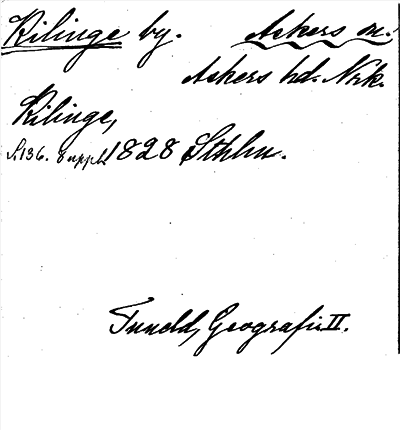 Kilinge by. Askers sn.
Askers hd. Nrk.
Kilinge,
S.136. 8 uppl. 1828 Sthlm.
Tuneld, Geografi II.